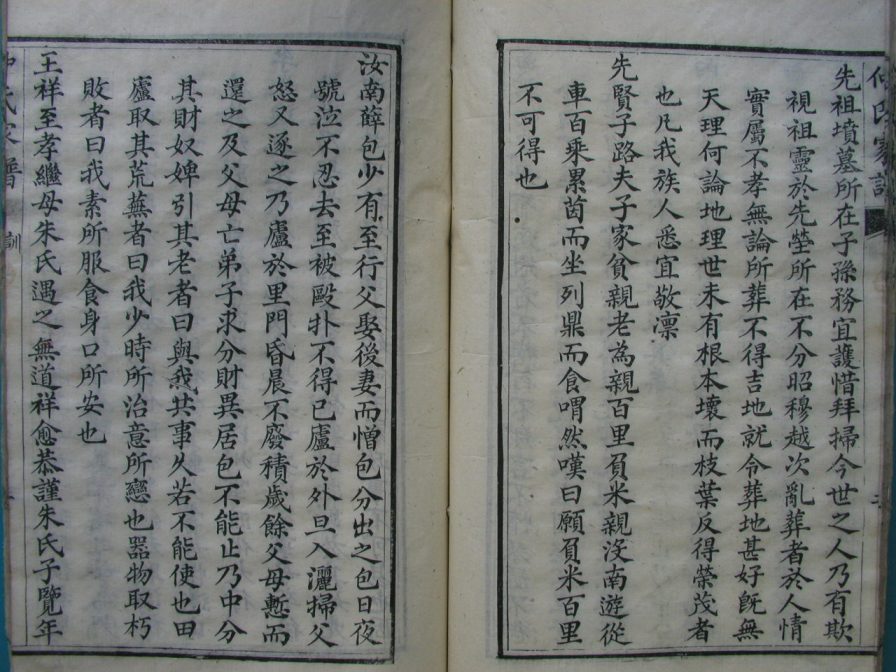 氏家訓
先祖墳墓所在子孫務宜護惜拜掃今世之人乃有欺
視祖靈於先塋所在不分昭穆越次亂葬者於人情
實屬不孝無論所葬不得吉地就令葬地甚好既無
天理何論地理世未有根本壞而枝葉反得榮茂者
也凡我族人悉宜敬凛
先賢子路夫子家貧親老為親百里負米親沒南遊從
車百乘累茵而坐列鼎而食喟然嘆曰願負米百里
不可得也
汝南薛包少有至行父娶後妻而憎包分出之包日夜
號泣不忍去至被毆扑不得已廬於外旦入灑掃父
怒又逐之乃廬於里門昏晨不廢積歲餘父母慙而
還之及父母亡弟子求分財異居包不能止乃中分
其財奴婢引其老者曰與我共事久若不能使也田
廬取其荒蕪者曰我少時所治意所戀也器物取朽
敗者曰我素所服食身口所安也
王祥至孝繼母朱氏遇之無道祥愈恭謹朱氏子覽年
氏家譜
訓